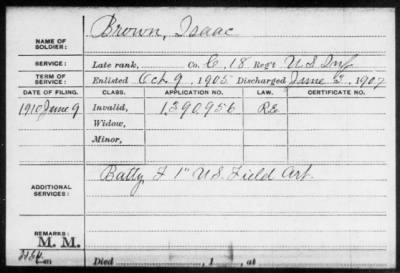 NAME OF SOLDIER: Brown, Isaac
SERVICE: Late rank, Co. C, 18 Reg't U S Inf
TERM OF SERVICE: Enlisted Oct 9, 1905 Discharged June 3, 1907
DATE OF FILING. CLASS. APPLICATION NO. LAW. CERTIFICATE NO.
1910 June 9 Invalid, 1,390,956
Widow,
Minor,
ADDITIONAL SERVICES: Batty F 1" U.S. Field Art.
REMARKS:
M. M.
Died , 1 , at